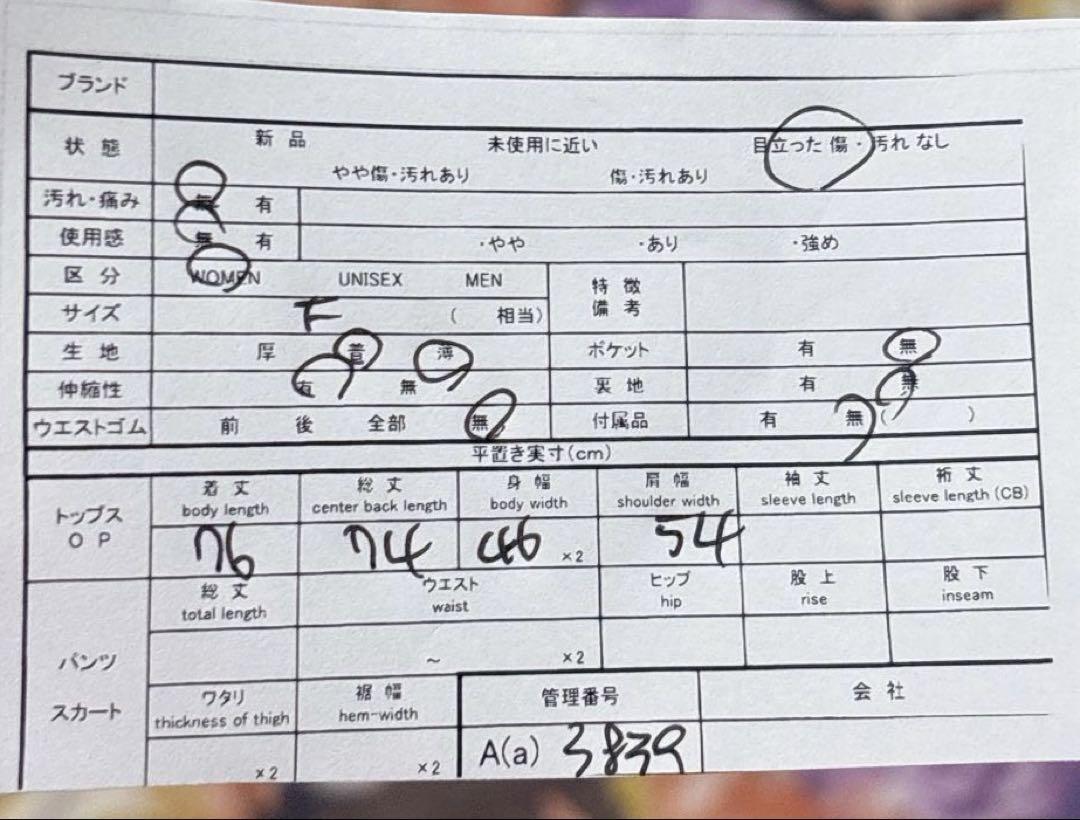 ブランド
状 態 新 品 未使用に近い 目立った 傷・汚れ なし
やや傷・汚れあり 傷・汚れあり
汚れ・痛み 無 有
使用感 無 有 ・やや ・あり ・強め
区 分 WOMEN UNISEX MEN 特 徴
備 考
サイズ F ( 相当)
生 地 厚 普 薄 ポケット 有 無
伸縮性 有 無 裏 地 有 無
ウエストゴム 前 後 全部 無 付属品 有 無 ( )
平置き実寸(cm)
トップス
O P
着 丈 総 丈 身 幅 肩 幅 袖 丈 裄 丈
body length center back length body width shoulder width sleeve length sleeve length (CB)
76 74 46 ×2 54
パンツ
スカート
総 丈 ウエスト ヒップ 股 上 股 下
total length waist hip rise inseam
~ ×2
ワタリ 裾 幅 管理番号 会 社
thickness of thigh hem-width
×2 ×2 A(a) 3839